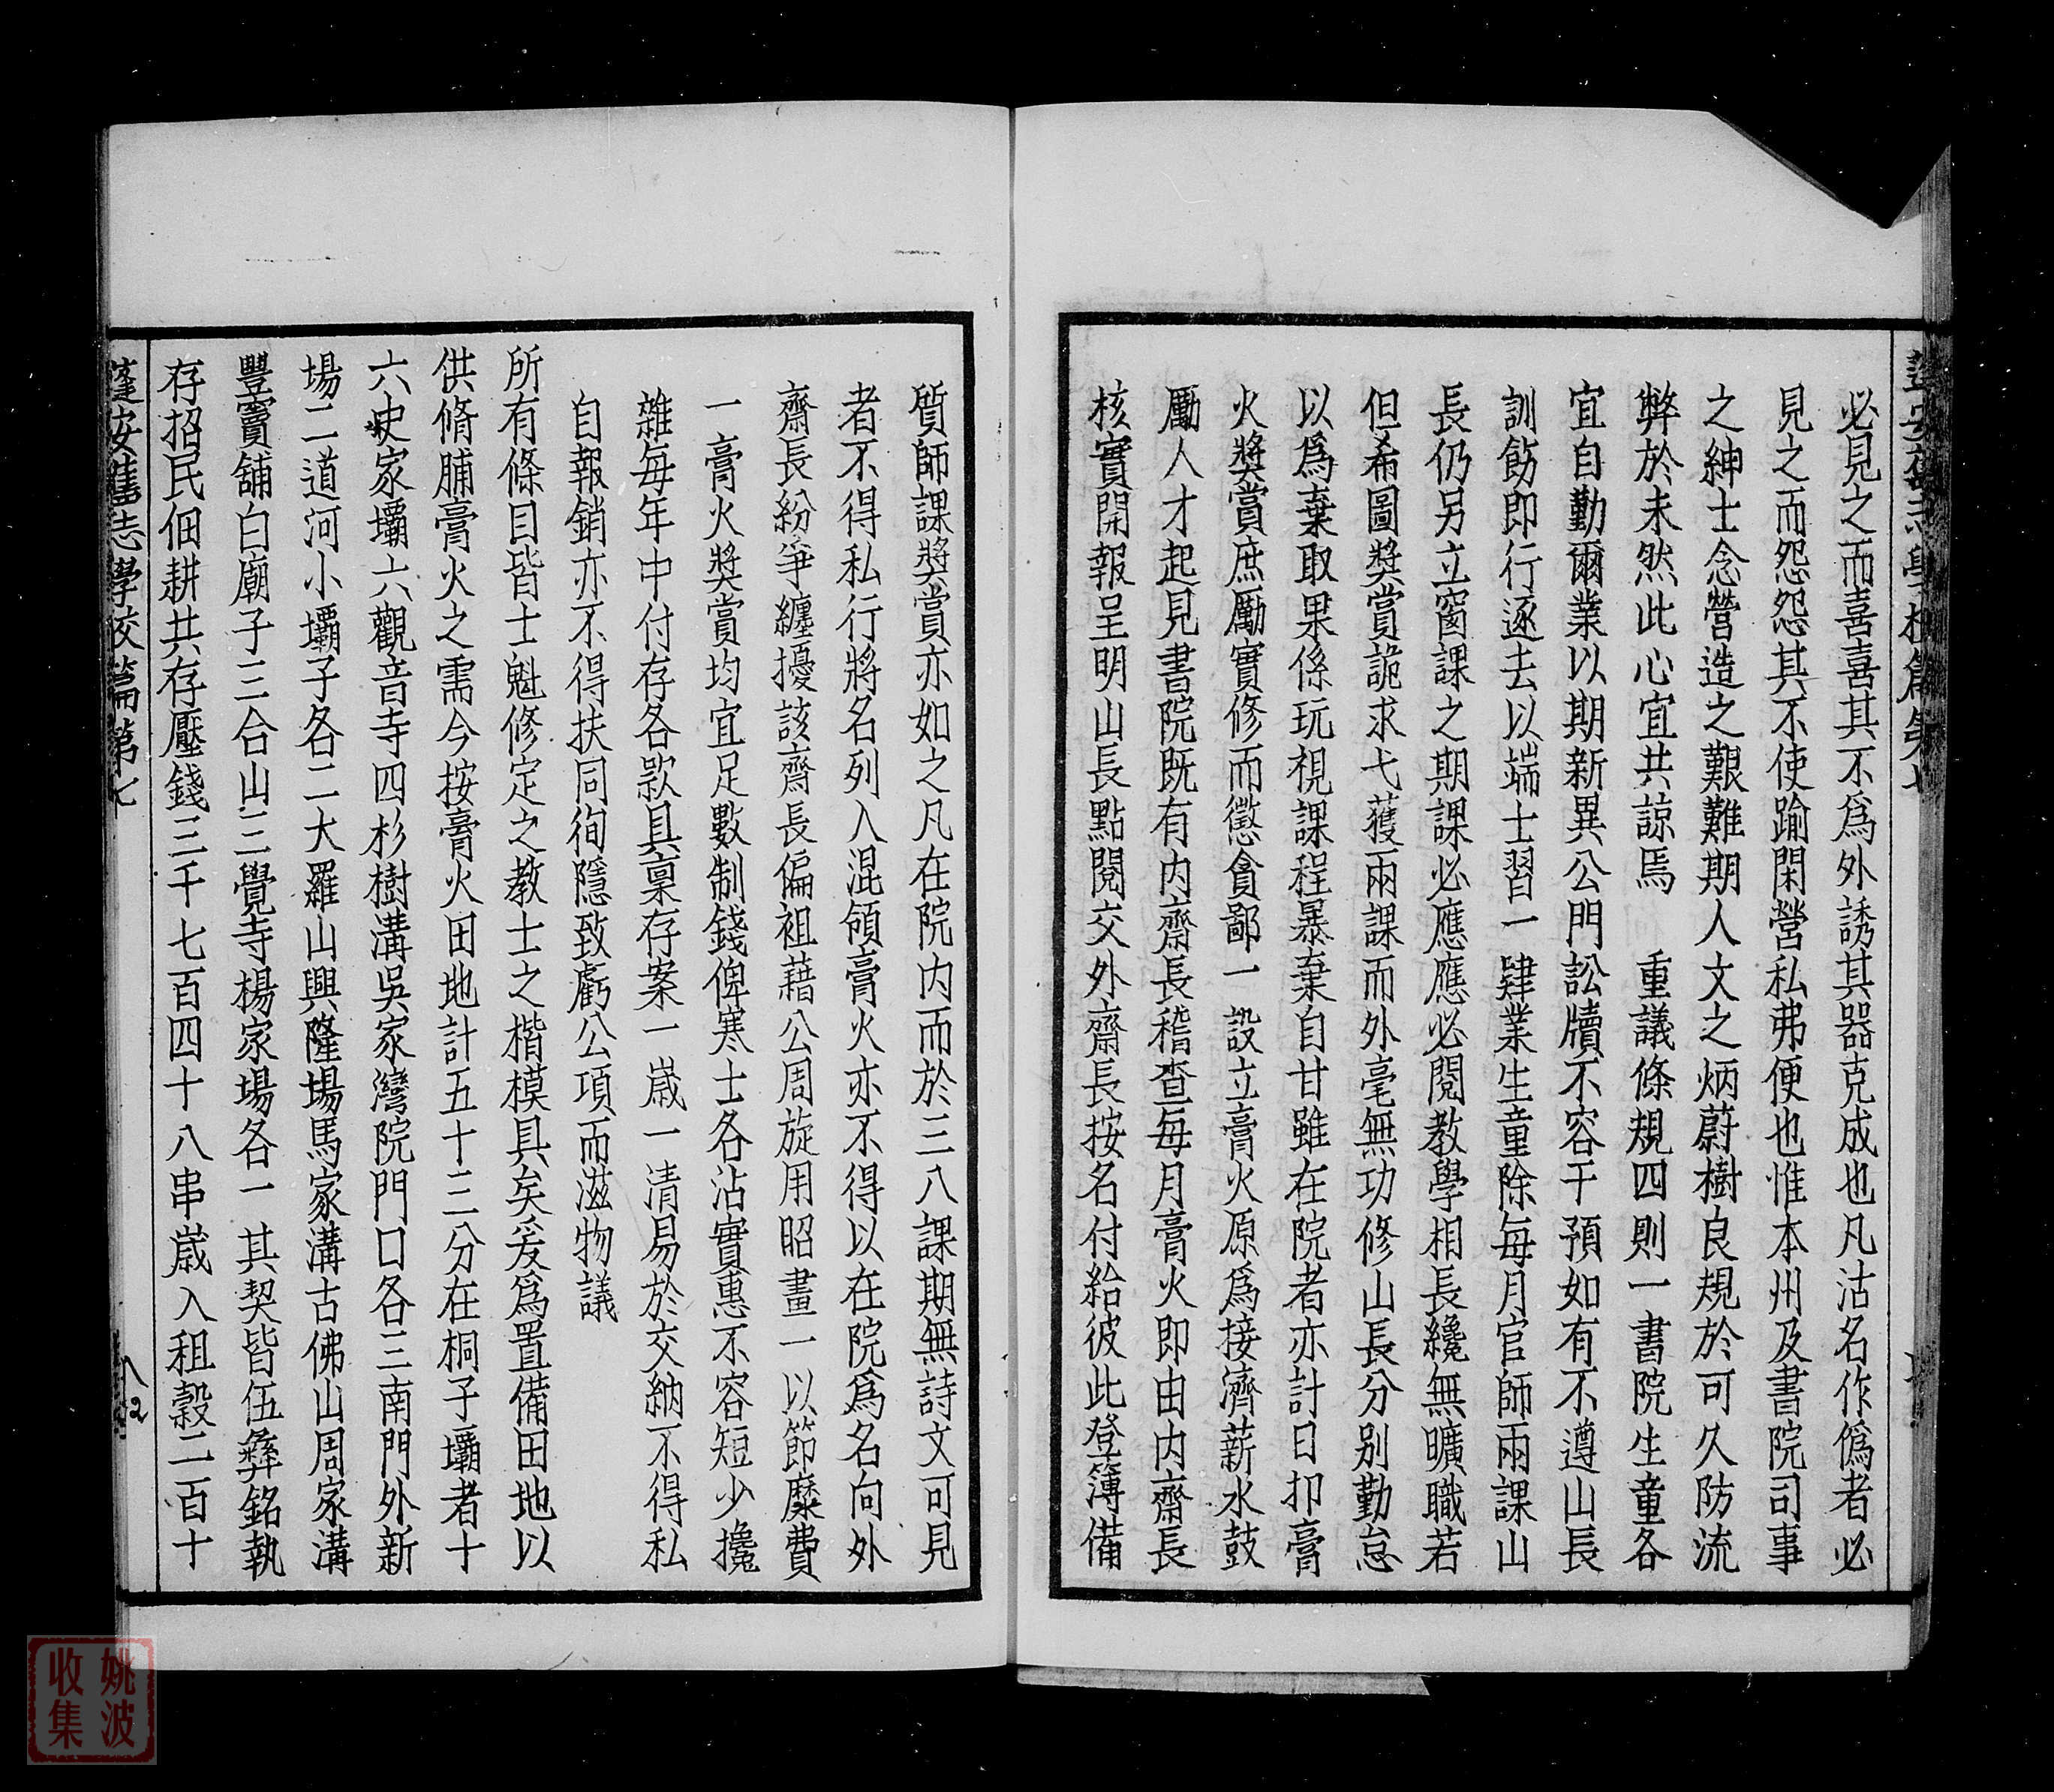 蓬安舊志學校篇第七
必見之而喜喜其不爲外誘其器克成也凡沽名作僞者必
見之而怨怨其不使踰閑營私弗便也惟本州及書院司事
之紳士念營造之艱難期人文之炳蔚樹良規於可久防流
弊於未然此心宜共諒焉 重議條規四則一書院生童各
宜自勤爾業以期新異公門訟牘不容干預如有不遵山長
訓飭即行逐去以端士習一肄業生童除每月官師兩課山
長仍另立窗課之期課必應應必閱教學相長纔無曠職若
但希圖獎賞詭求弋獲兩課而外毫無功修山長分別勤怠
以爲棄取果係玩視課程暴棄自甘雖在院者亦計日扣膏
火獎賞庶勵實修而懲貪鄙一設立膏火原爲接濟薪水鼓
勵人才起見書院既有内齋長稽查每月膏火即由内齋長
核實開報呈明山長點閱交外齋長按名付給彼此登簿備
質師課獎賞亦如之凡在院内而於三八課期無詩文可見
者不得私行將名列入混領膏火亦不得以在院爲名向外
齋長紛爭纏擾該齋長偏袒藉公周旋用昭畫一以節糜費
一膏火獎賞均宜足數制錢俾寒士各沾實惠不容短少攙
雜每年中付存各款具稟存案一歲一清易於交納不得私
自報銷亦不得扶同徇隱致虧公項而滋物議
所有條目皆士魁修定之教士之楷模具矣爰爲置備田地以
供脩脯膏火之需今按膏火田地計五十三分在桐子壩者十
六史家壩六觀音寺四杉樹溝吳家灣院門口各三南門外新
場二道河小壩子各二大羅山興隆場馬家溝古佛山周家溝
豐竇舖白廟子三合山三覺寺楊家場各一其契皆伍彝銘執
存招民佃耕共存壓錢三千七百四十八串歲入租穀二百十
蓬安舊志學校篇第七
八2
姚波
收集